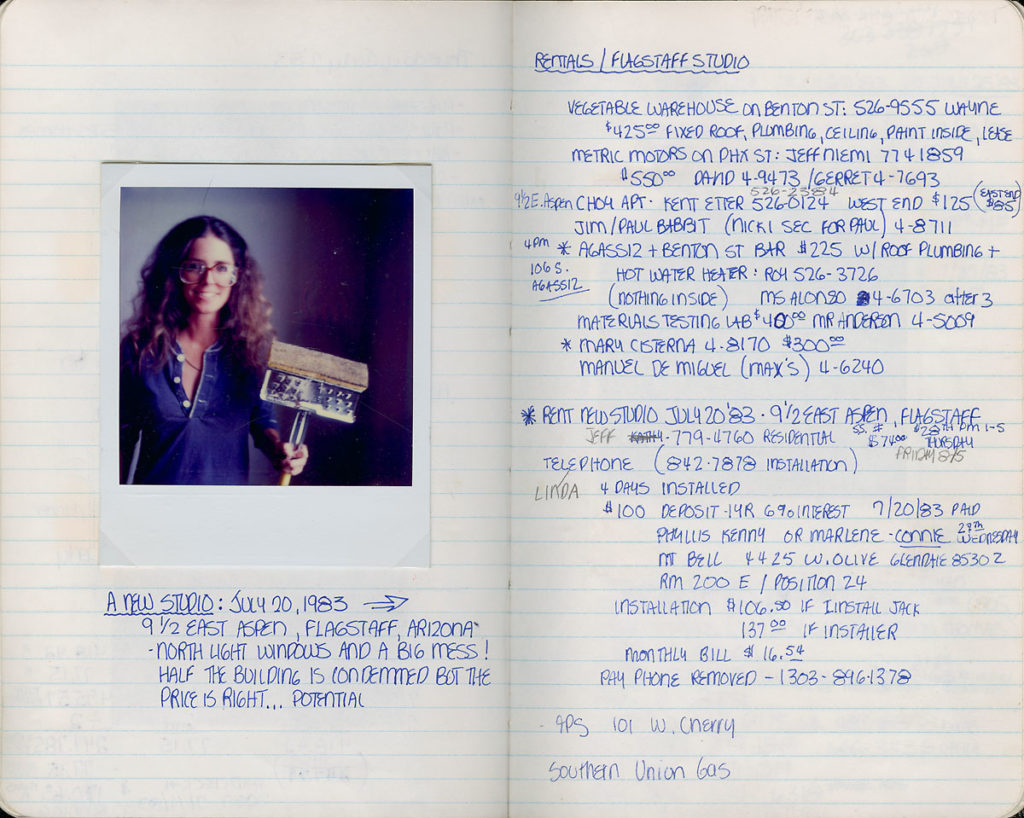 A NEW STUDIO: JULY 20, 1983
9 1/2 EAST ASPEN, FLAGSTAFF, ARIZONA
-NORTH LIGHT WINDOWS AND A BIG MESS!
HALF THE BUILDING IS CONDEMMED BUT THE
PRICE IS RIGHT... POTENTIAL
RENTALS / FLAGSTAFF STUDIO
VEGETABLE WAREHOUSE ON BENTON ST: 526-9555 WAYNE
$425.00 FIXED ROOF, PLUMBING, CEILING, PAINT INSIDE, LEASE
METRIC MOTORS ON PHX ST: JEFF NIEMI 774 1859
$550.00 DAVID 4-9473 / GERRET 4-7693
526-2384
9 1/2 E. ASPEN CHOY APT. KENT ETTER 526-0124 WEST END $125 (EAST END $85)
JIM/PAUL BABBIT (NICKI SEC FOR PAUL) 4-8711
4PM * AGASSIZ + BENTON ST BAR $225 W/ ROOF PLUMBING +
106 S. AGASSIZ
HOT WATER HEATER: ROY 526-3726
(NOTHING INSIDE) MS ALONSO 4-6703 after 3
MATERIALS TESTING LAB $400.00 MR ANDERSON 4-5009
* MARY CISTERNA 4-8170 $300.00
MANUEL DE MIGUEL (MAX'S) 4-6240
* RENT NEW STUDIO JULY 20 '83 · 9 1/2 EAST ASPEN, FLAGSTAFF
JEFF KATHY-779-4760 RESIDENTIAL SS. # $74.00 28TH PM 1-5 THURSDAY
FRIDAY 8/5
TELEPHONE (842-7878 INSTALLATION)
LINDA 4 DAYS INSTALLED
$100 DEPOSIT-1YR 6% INTEREST 7/20/83 PAID
PHYLLIS KENNY OR MARLENE-CONNIE 27th WEDNESDAY
MT BELL 4425 W. OLIVE GLENDALE 85302
RM 200 E / POSITION 24
INSTALLATION $106.50 IF I INSTALL JACK
137.00 IF INSTALLER
MONTHLY BILL $16.54
PAY PHONE REMOVED - 1303-896-1378
APS 101 W. Cherry
Southern Union Gas